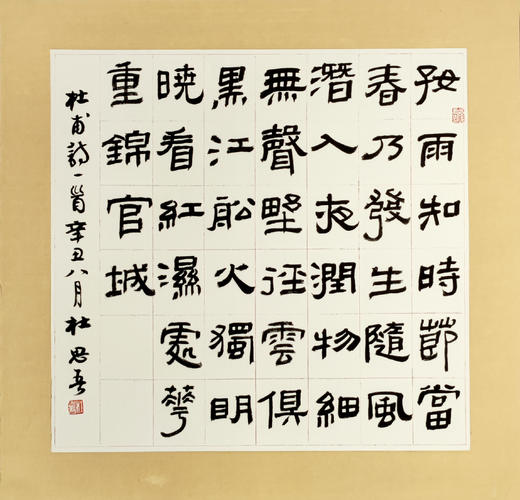 好雨知時節當
春乃發生隨風
潛入夜潤物細
無聲野徑雲俱
黑江船火獨明
曉看紅濕處華
重錦官城
杜甫詩一首辛丑八月杜思吾